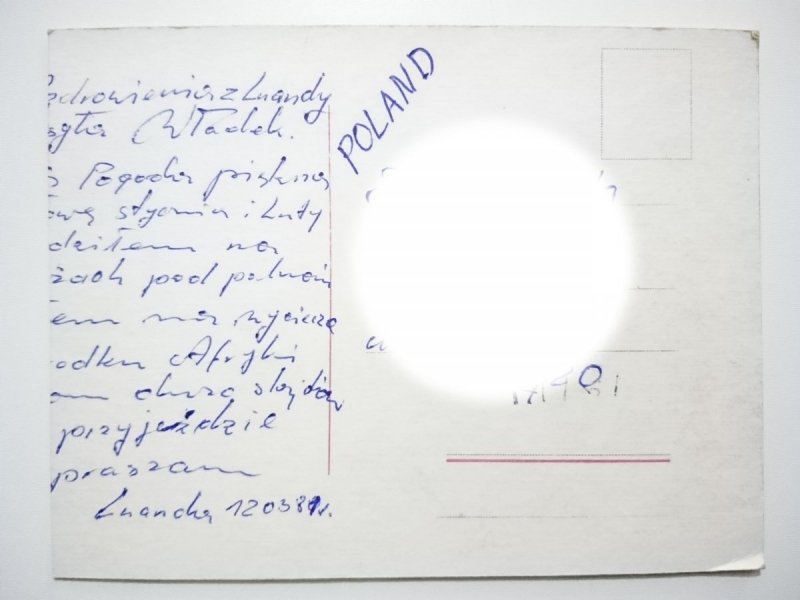 zdrowienia z Luandy
syła Władek.
Pogoda piękna
stycznia i Luty
dziłem na
żach pod palmam
łem na wyciecz
rodku Afryki
am dużo slajdów
przyjeździe
praszam
Luanda 120381r.
POLAND